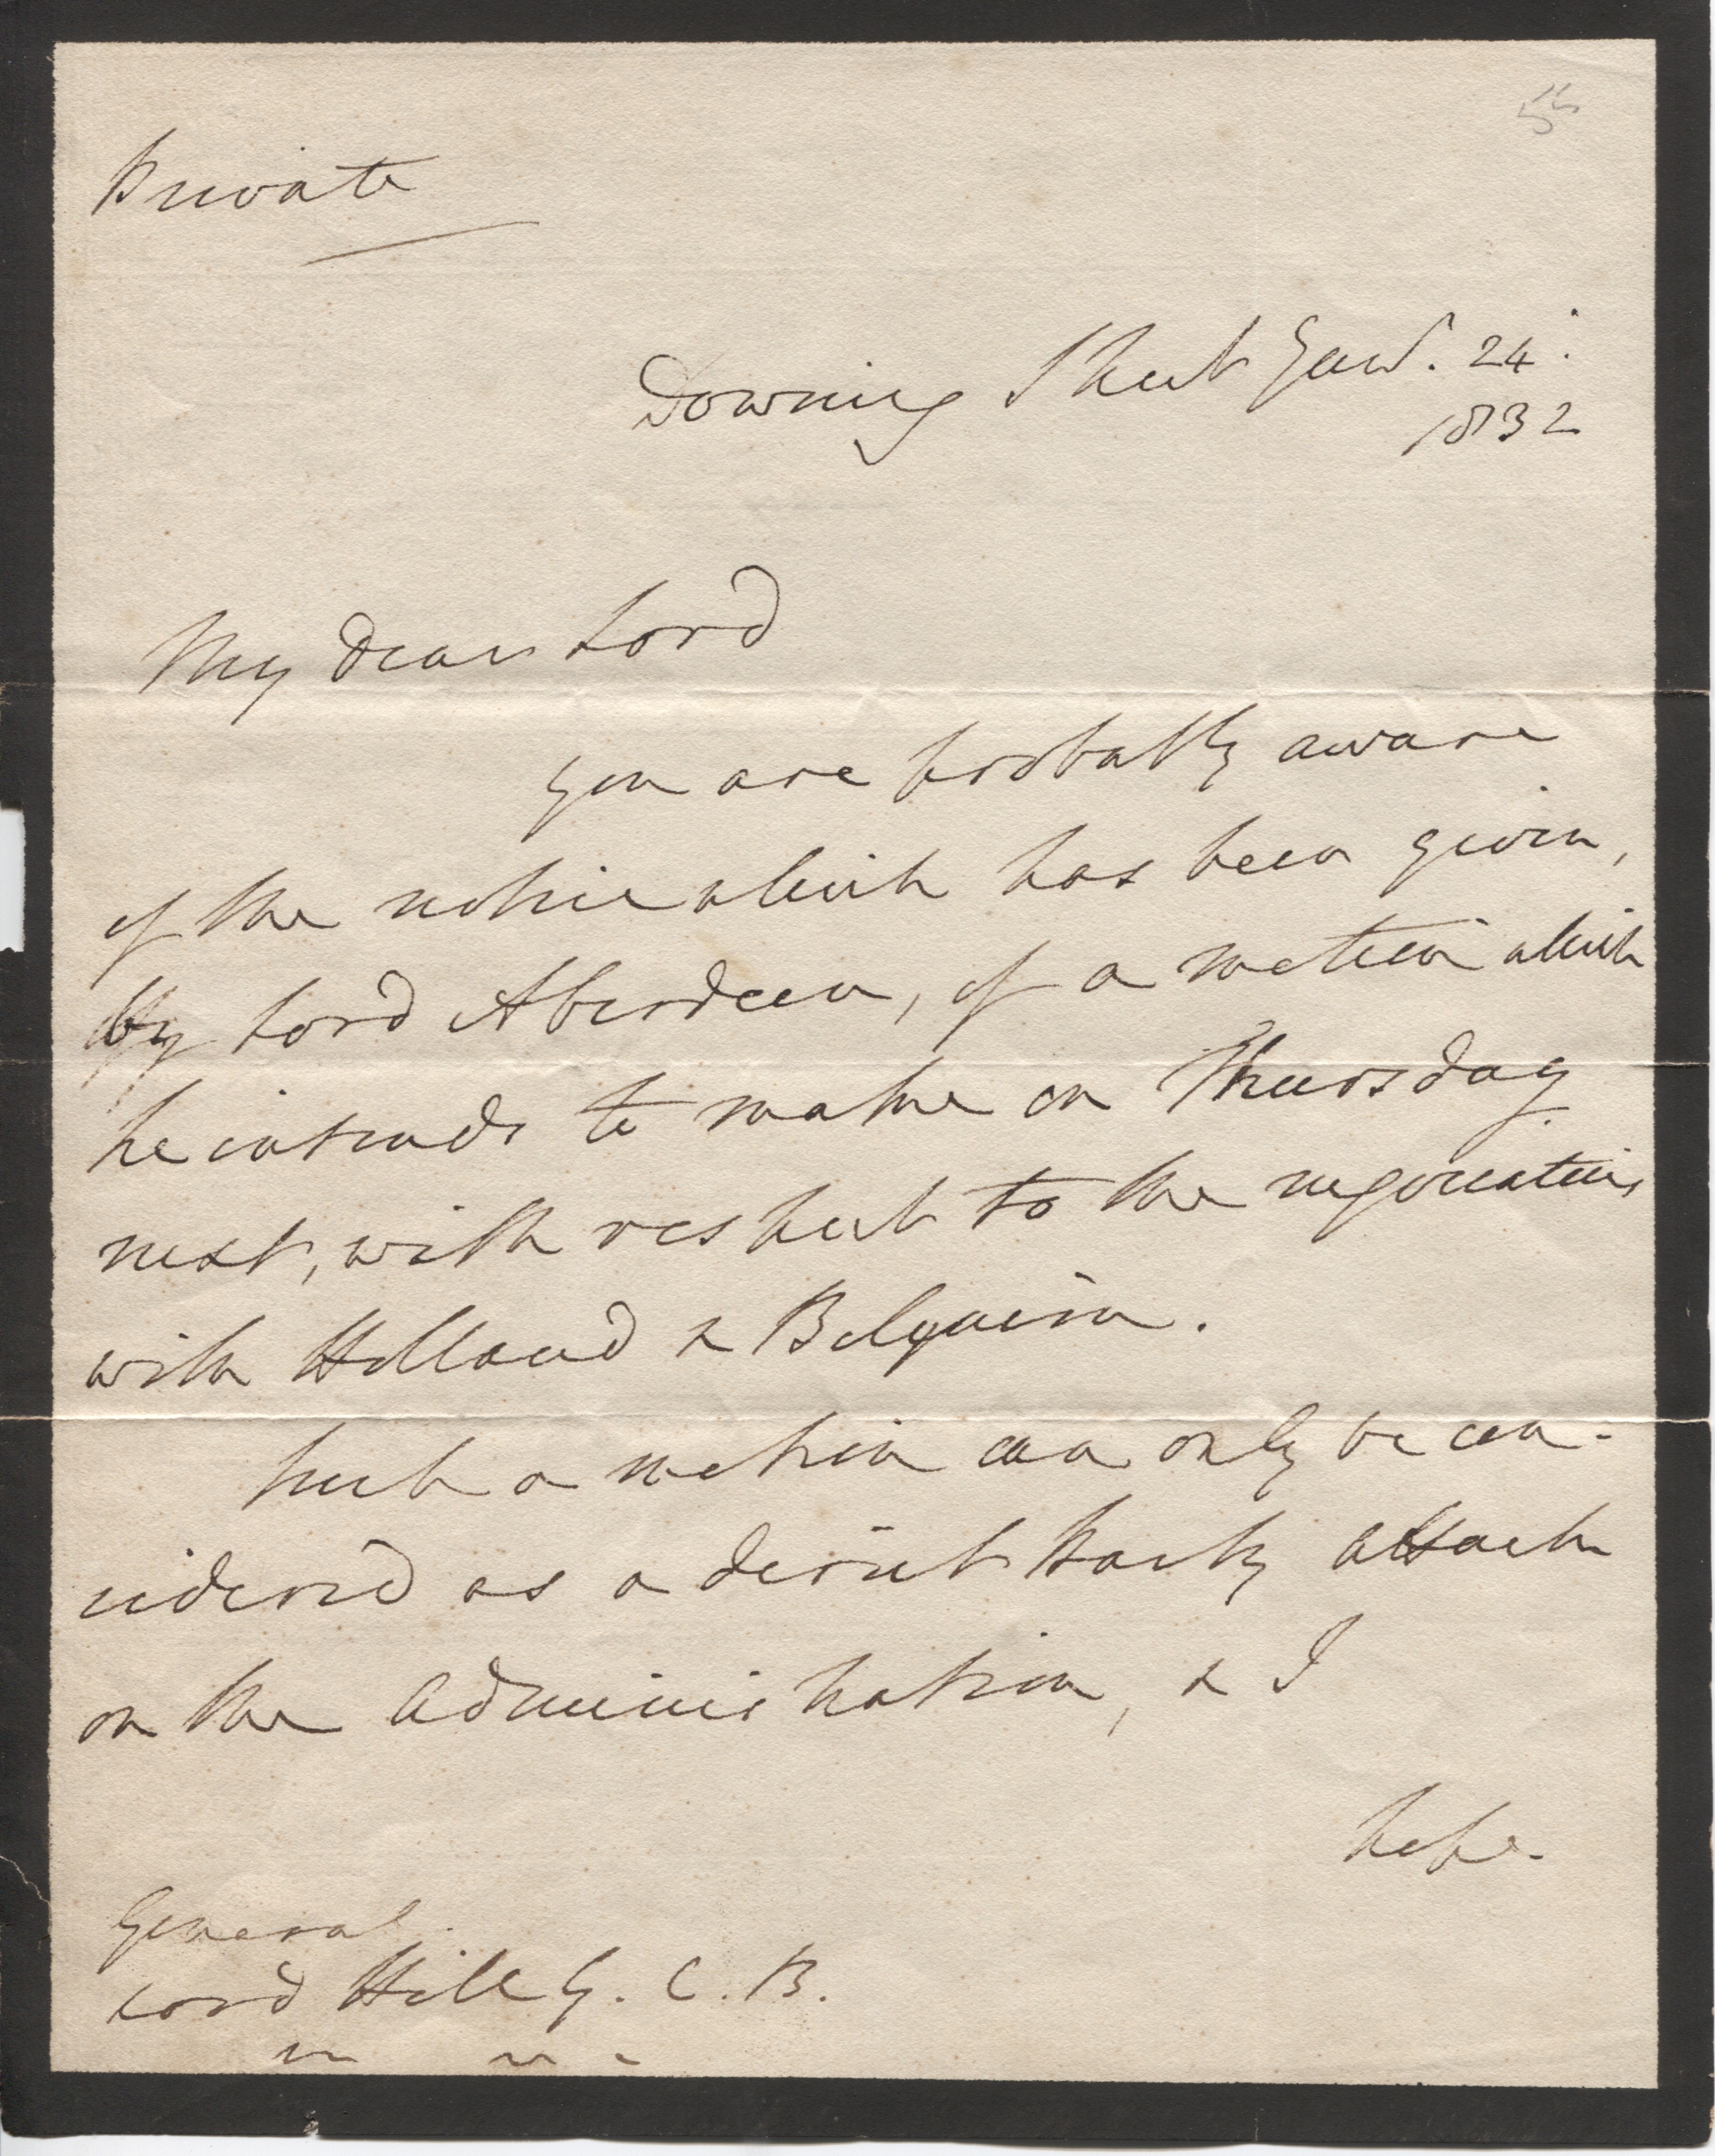 55
Private
Downing Street Jany. 24.
1832
My dear Lord
you are probably aware
of the notice which has been given,
by Lord Aberdeen, of a motion which
he intends to make on Thursday
next, with respect to the negociations
with Holland & Belgium.
Such a motion can only be con-
sidered as a direct party attack
on the Administration, & I
hope.
General
Lord Hill G. C. B.